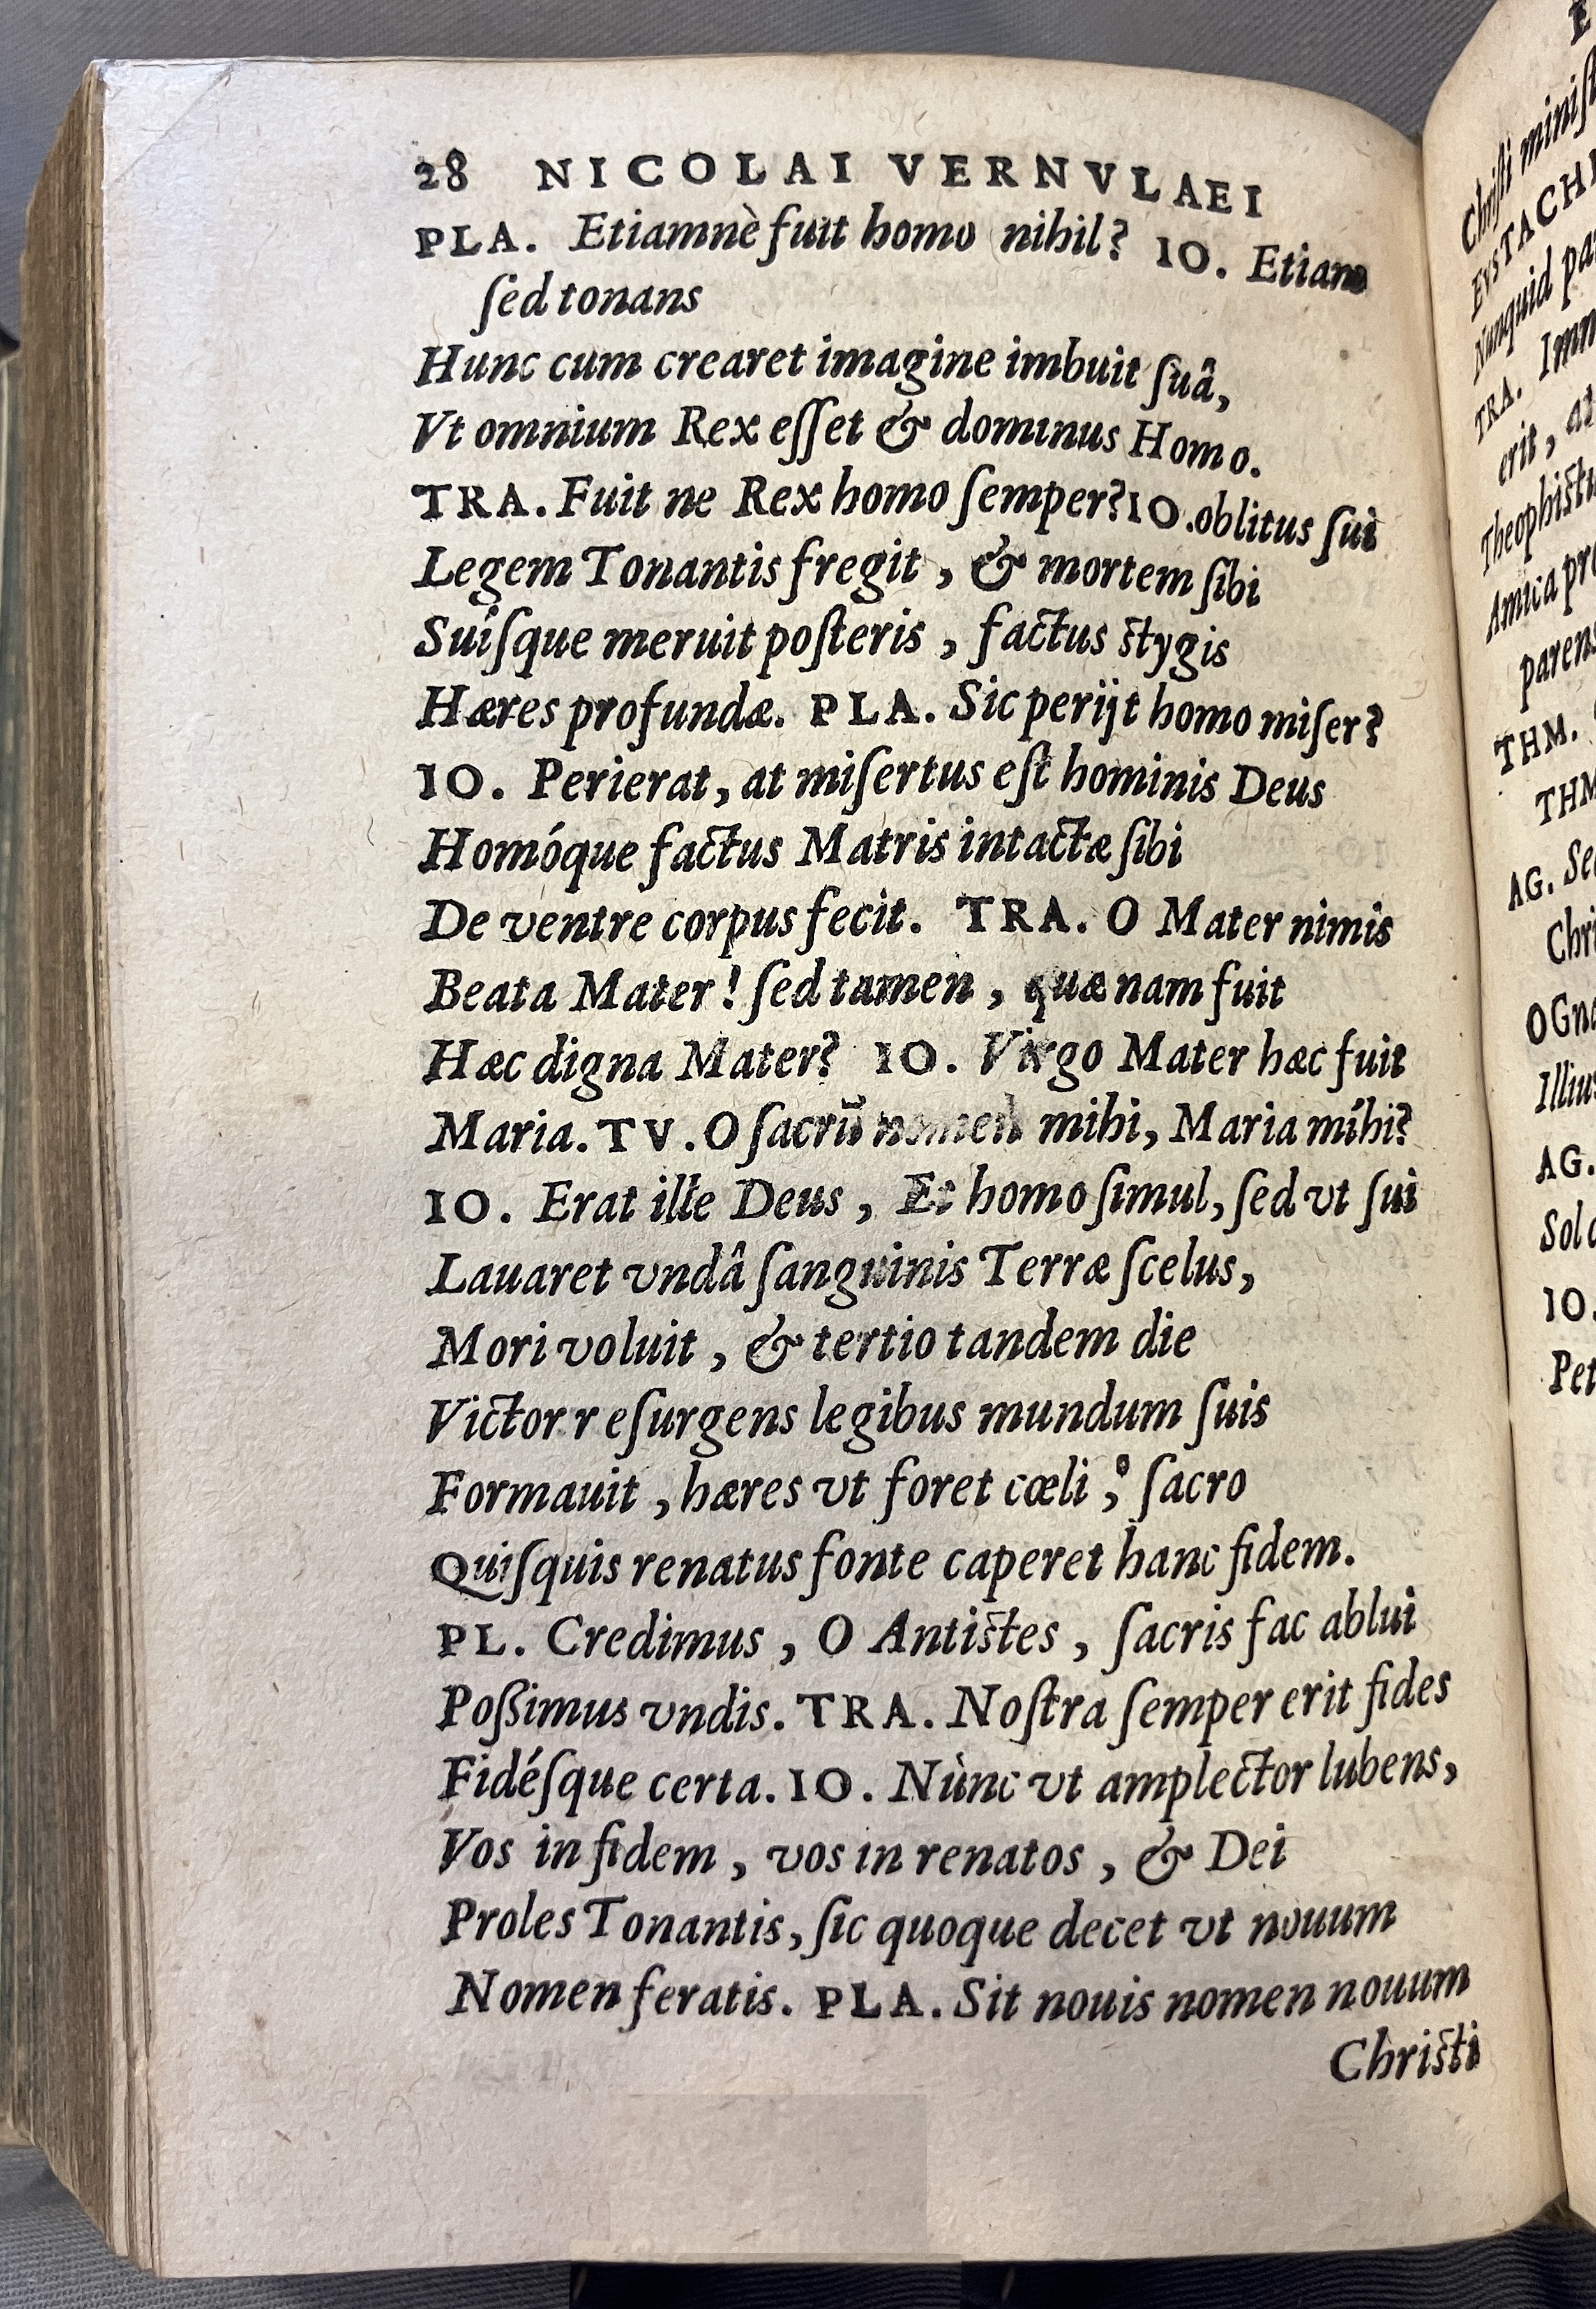 28 NICOLAI VERNVLAEI
PLA. Etiamnè fuit homo nihil? IO. Etiam
ſed tonans
Hunc cum crearet imagine imbuit ſuâ,
Vt omnium Rex eſſet & dominus Homo.
TRA. Fuit ne Rex homo ſemper? IO. oblitus ſui
Legem Tonantis fregit, & mortem ſibi
Suíſque meruit poſteris, factus ſtygis
Hæres profundæ. PLA. Sic perijt homo miſer?
IO. Perierat, at miſertus eſt hominis Deus
Homóque factus Matris intactæ ſibi
De ventre corpus fecit. TRA. O Mater nimis
Beata Mater! ſed tamen, quænam fuit
Hæc digna Mater? IO. Virgo Mater hæc fuit
Maria. TV. O ſacrũ nomen mihi, Maria míhi?
IO. Erat ille Deus, Et homo ſimul, ſed vt ſui
Lauaret vndâ ſanguinis Terræ ſcelus,
Mori voluit, & tertio tandem die
Victor r eſurgens legibus mundum ſuis
Formauit, hæres vt foret cœli, ſacro
Quiſquis renatus fonte caperet hanc fidem.
PL. Credimus, O Antiſtes, ſacris fac ablui
Poßimus vndis. TRA. Noſtra ſemper erit fides
Fidéſque certa. IO. Nùnc vt amplector lubens,
Vos in fidem, vos in renatos, & Dei
Proles Tonantis, ſic quoque decet vt nouum
Nomen feratis. PLA. Sit nouis nomen nouum
Chriſti
Chriſti
EVSTACHI
Nunquid
TRA.
erit, at
Amica
parens
THM.
THM
AG.
Chri
O Gna
Illius
AG.
Sol
IO.
Pet